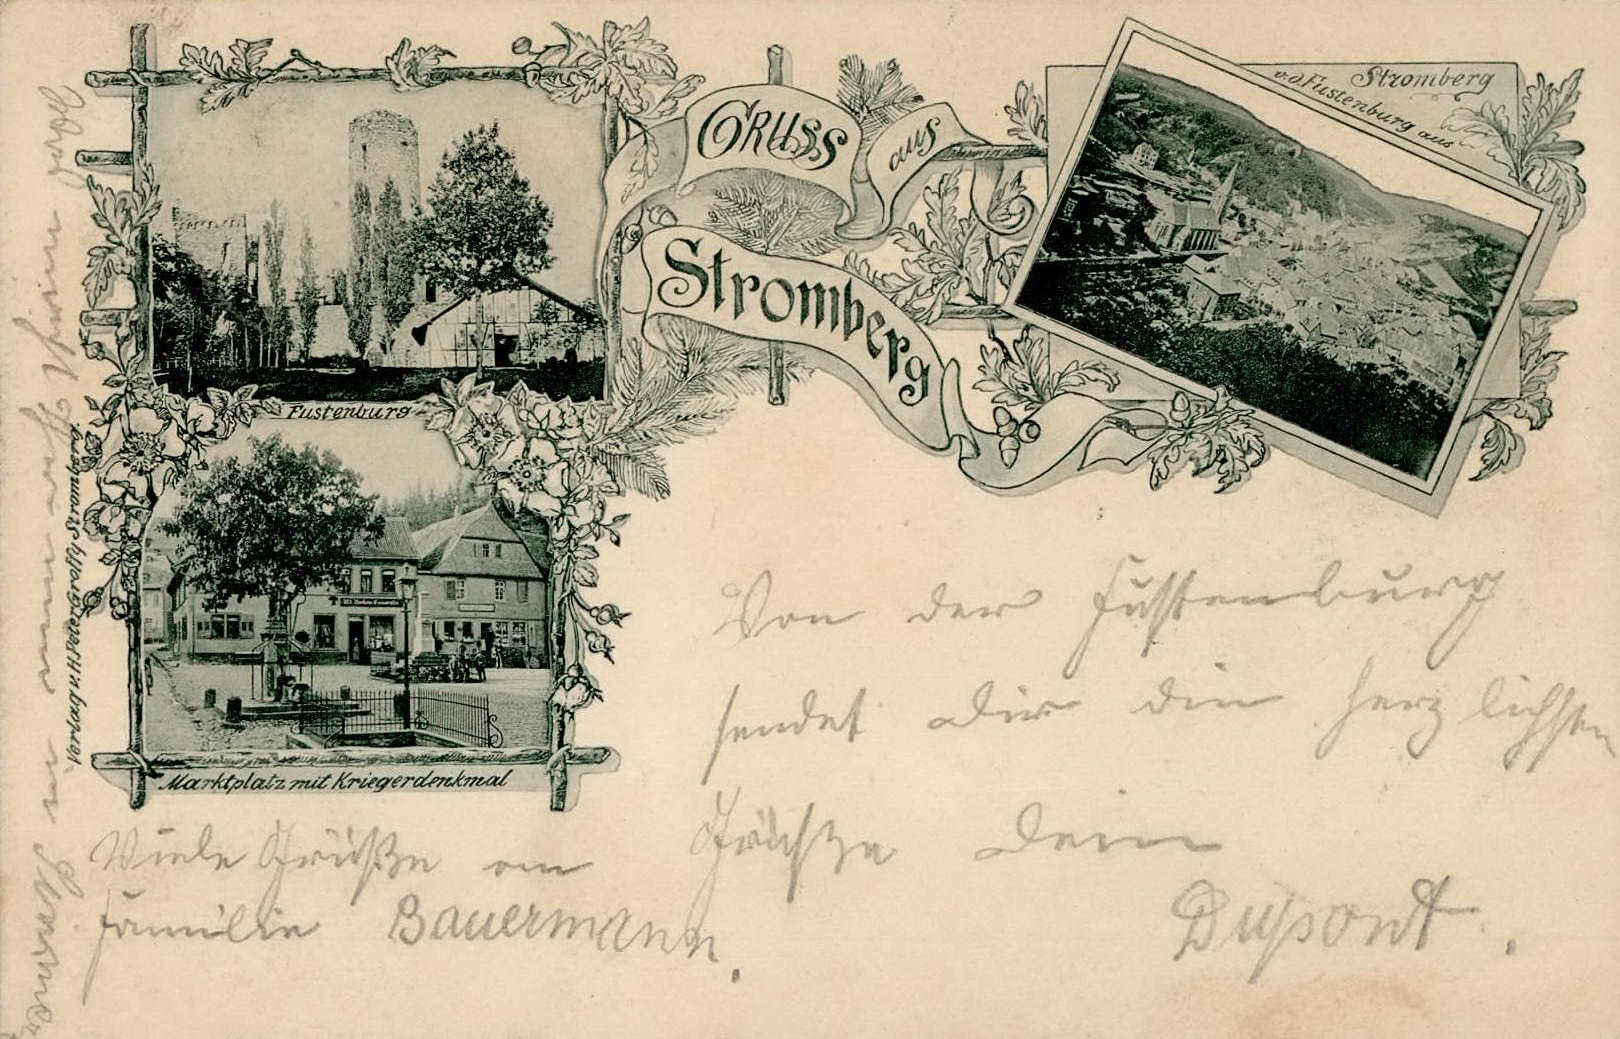 Gruss
aus
Stromberg
Stromberg
v.d. Fustenburg aus
Fustenburg
Marktplatz mit Kriegerdenkmal
Von der Fustenburg
sendet Dir die herzlichsten
Grüsse Dein
Dupont.
Viele Grüße an
Familie Bauermann.